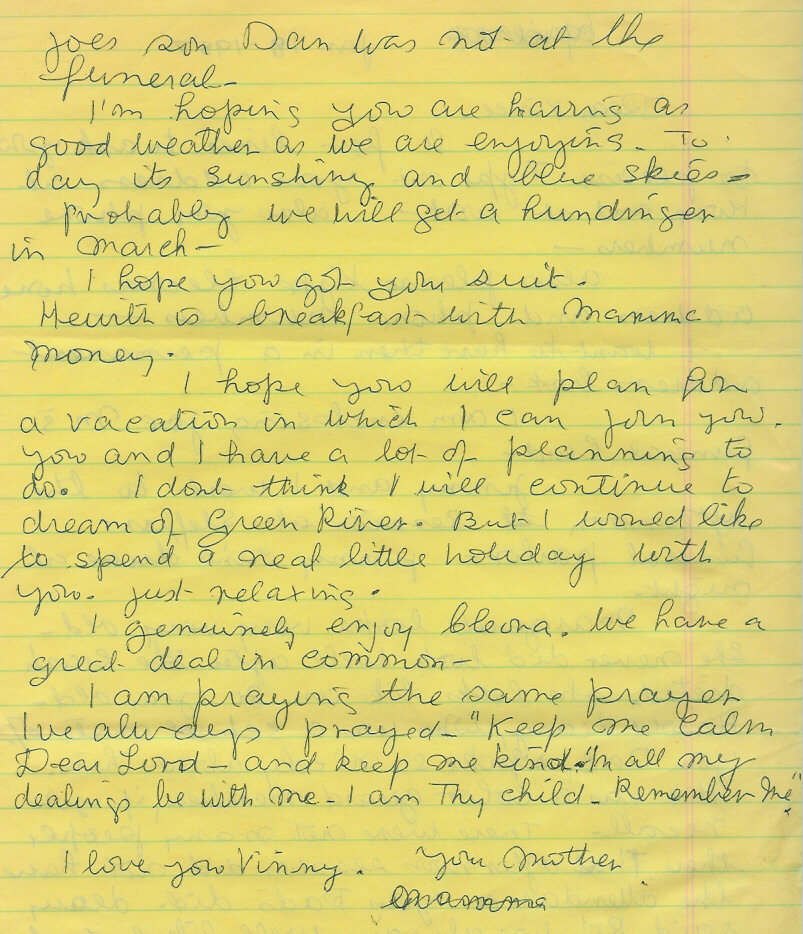 Joes son Dan was not at the
funeral-
I'm hoping you are having as
good weather as we are enjoying. To
day its sunshiny and blue skies-
Probably we will get a hundinger
in March-
I hope you got you suit.
Hewith is breakfast with Mamma
money.
I hope you will plan for
a vacation in which I can join you.
You and I have a lot of planning to
do. I dont think I will continue to
dream of Green River. But I would like
to spend a neat little holiday with
you. Just relaxing.
I genuinely enjoy Cleona. We have a
great deal in common-
I am praying the same prayer
I've always prayed- "Keep me Calm
Dear Lord- and keep me kind. In all my
dealings be with me- I am Thy child- Remember Me"
I love you Vinny. You Mother
Mamma